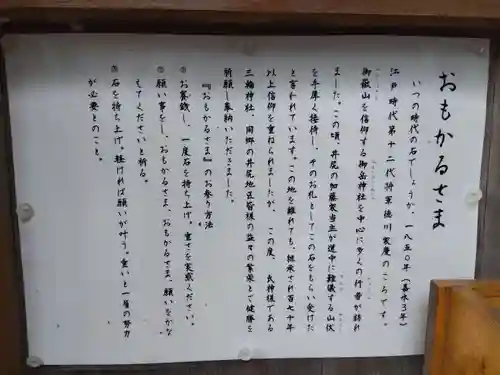 おもかるさま
いつの時代の石でしょうか、一八五〇年（嘉永３年）
江戸時代第十二代将軍徳川家慶のころです。
御嶽山を信仰する御岳神社を中心に多くの行者が訪れ
ました。この頃、井尻の加藤家当主が道中に難儀する山伏
を手厚く接待し、そのお礼としてこの石をもらい受けた
と言われています。この地を離れても、継承され百七十年
以上信仰を重ねられましたが、この度、氏神様である
三輪神社、同郷の井尻地区皆様の益々の繁栄とご健勝を
祈願し奉納いただきました。
『おもかるさま』のお参り方法
お賽銭し、一度石を持ち上げ。重さを実感ください。
願い事をし、おもかるさま、おもかるさま、願いをかな
えてくださいと祈る。
石を持ち上げ。軽ければ願いが叶う。重いと一層の努力
が必要とのこと。